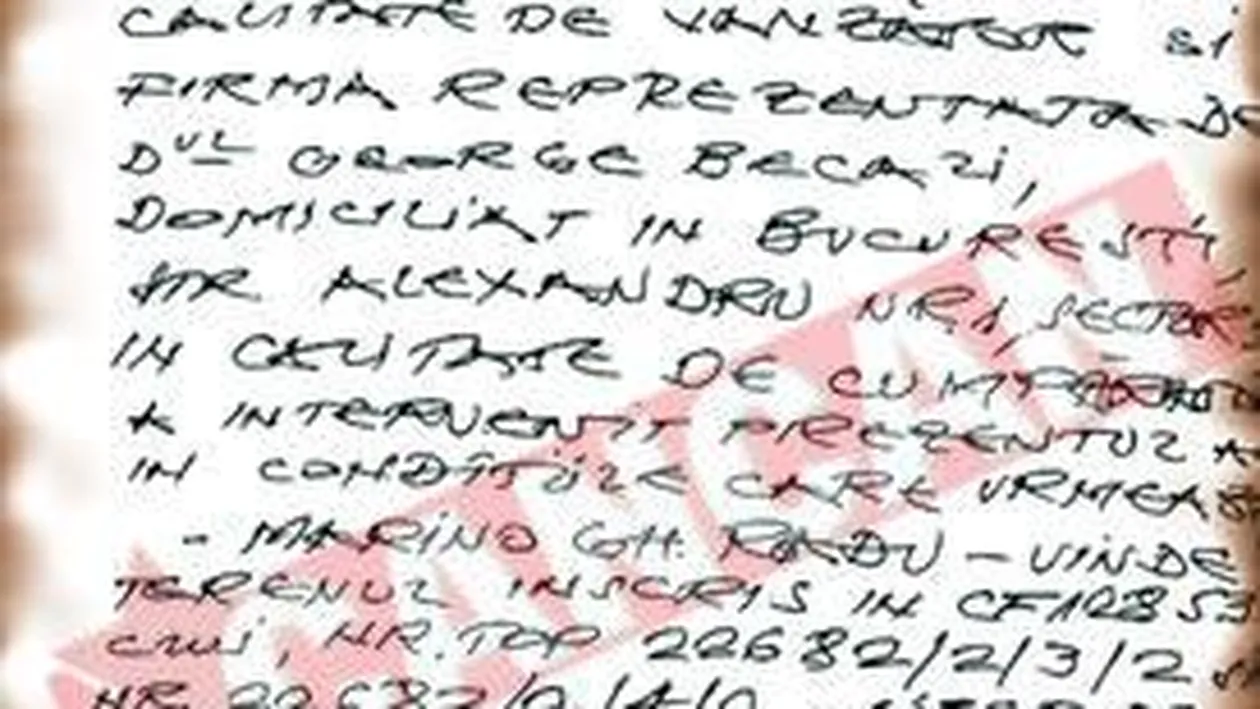 CALITATE DE VANZATOR SI
FIRMA REPREZENTATA DE
DUL GEORGE BECALI,
DOMICILIAT IN BUCURESTI,
STR ALEXANDRU NR1, SECTOR
IN CALITATE DE
A INTERVENIT PREZENTUL
IN CONDITIILE CARE
- MARINO GH. RADU - VINDE
TERENUL INSCRIS IN CF
NR. TOP 22682/2/3/2
NR